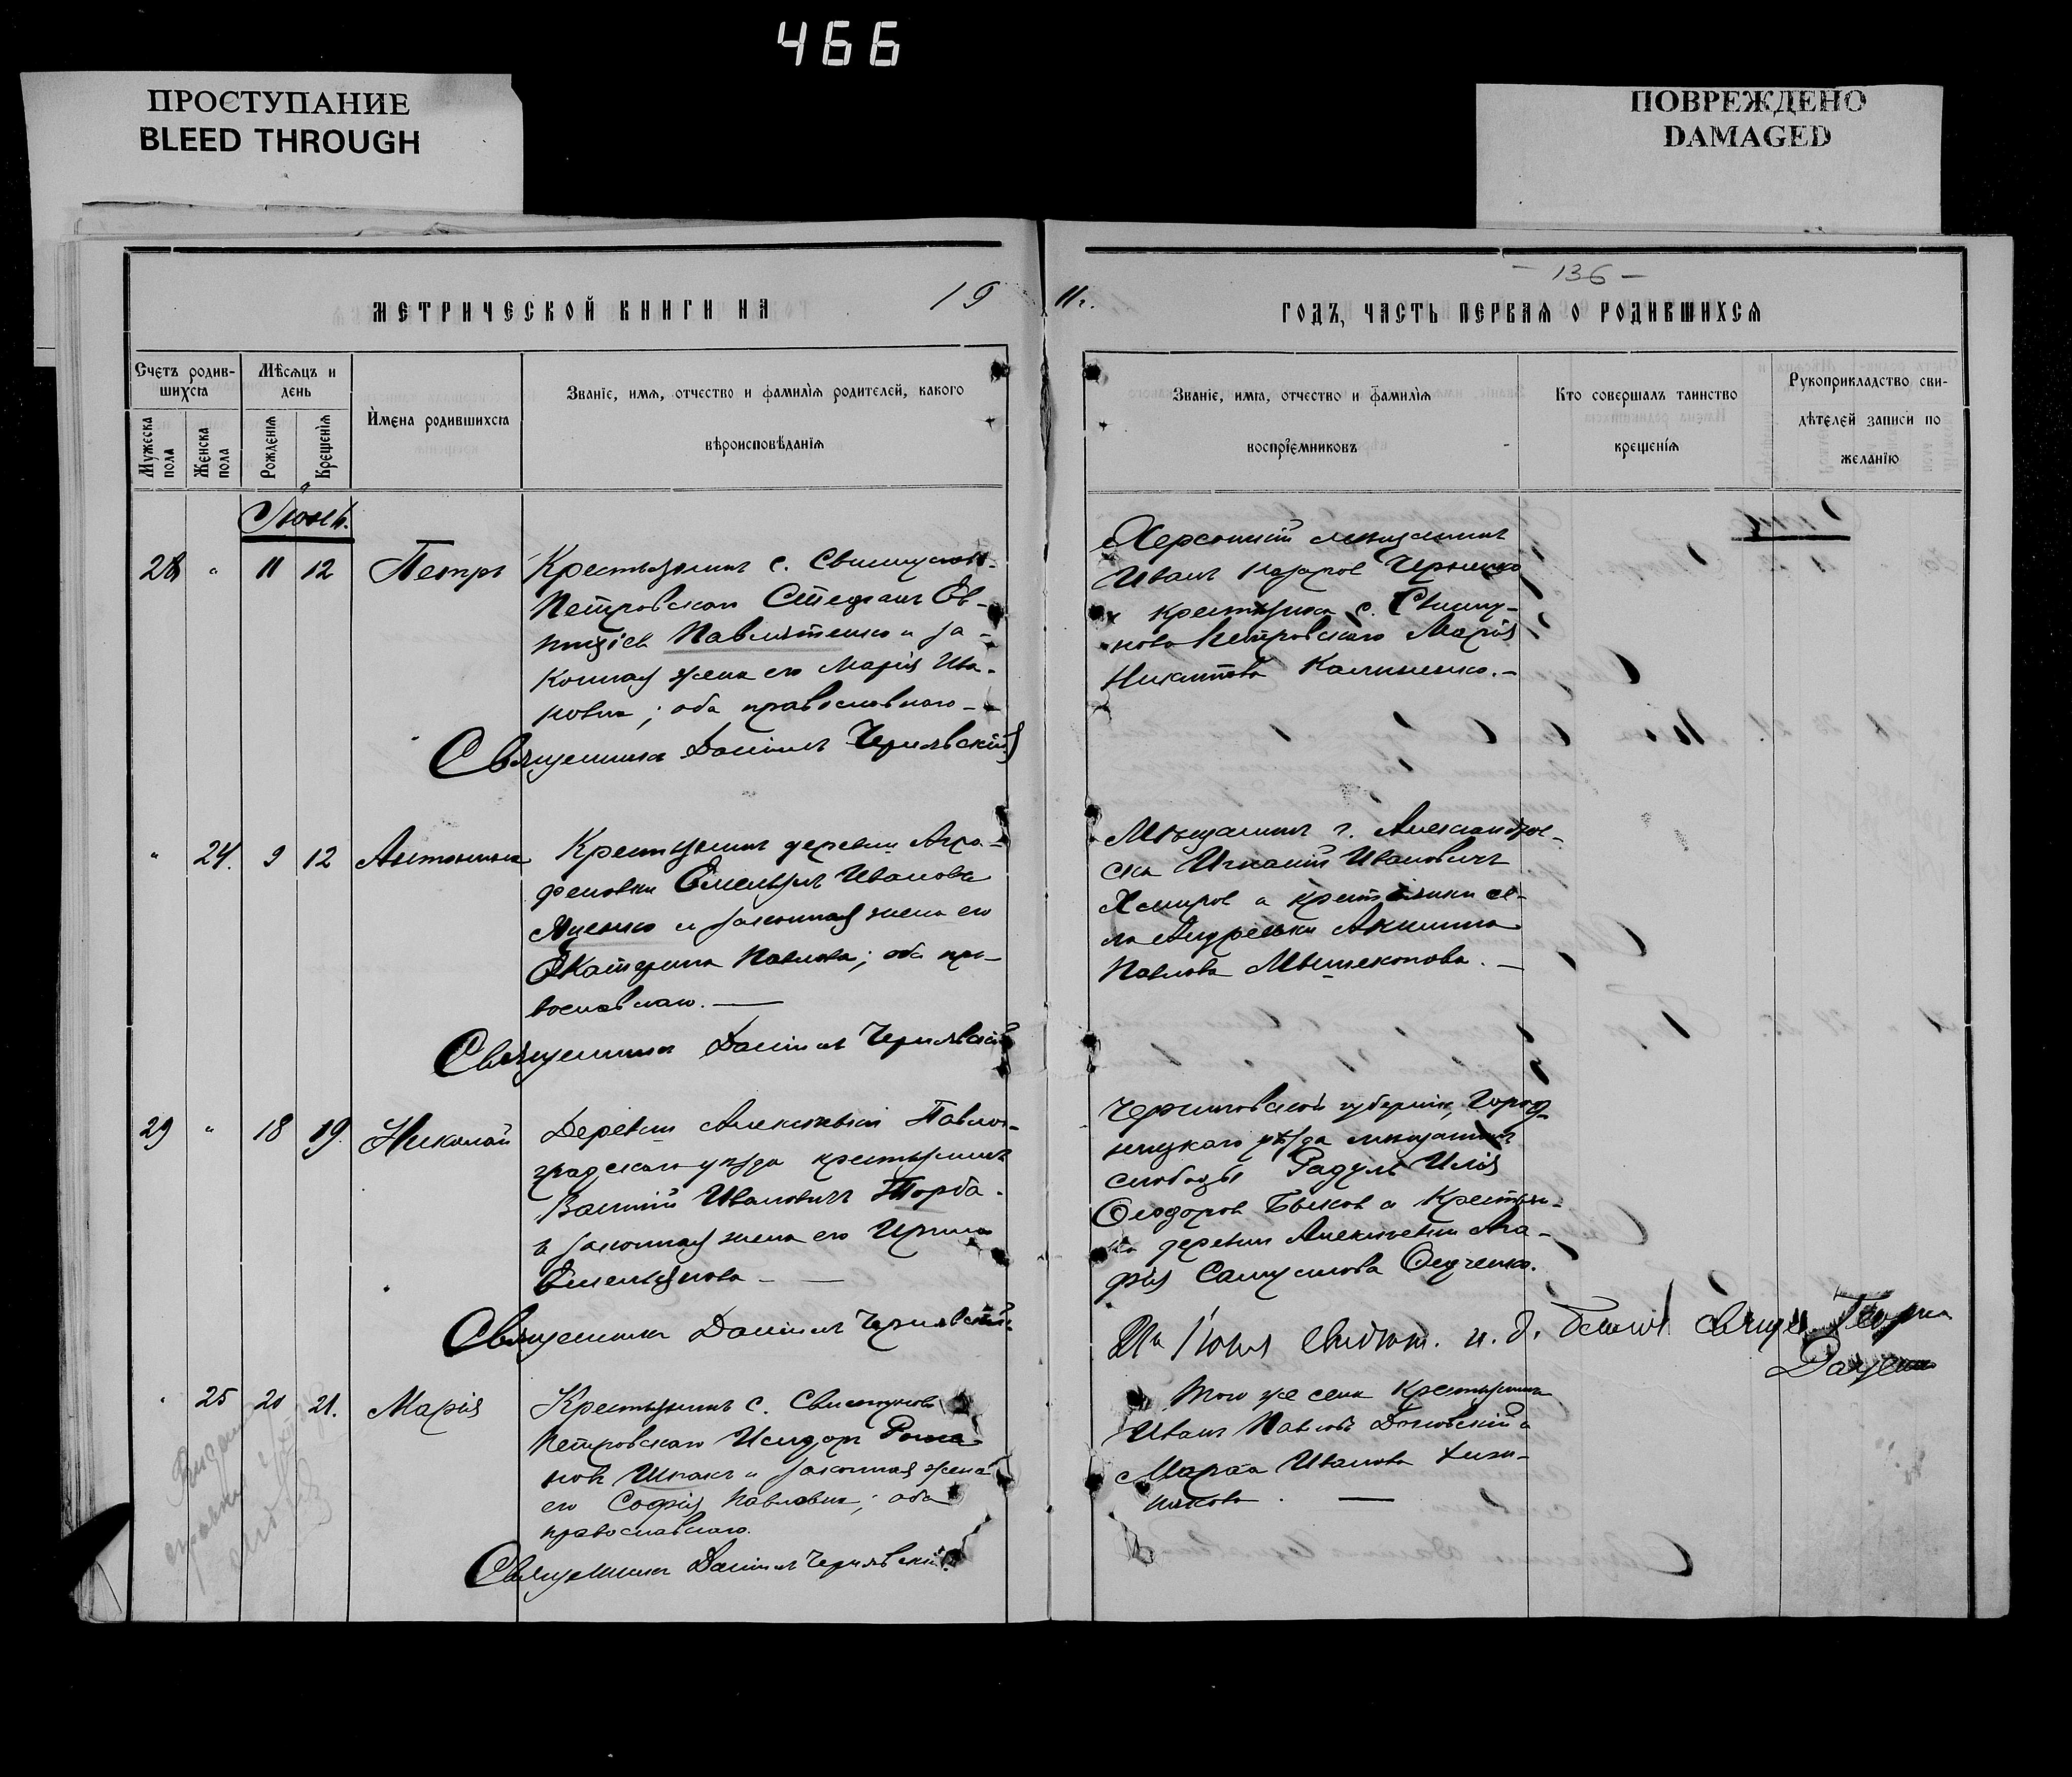 466
ПРОСТУПАНИЕ
BLEED THROUGH
ПОВРЕЖДЕНО
DAMAGED
МЕТРИЧЕСКОЙ КНИГИ НА 19
11 г.
— 136 —
ГОДЪ, ЧАСТЬ ПЕРВАЯ О РОДИВШИХСЯ
Счетъ родив-
шихся
Мужеска пола
Женска пола
Мѣсяцъ и
день
Рожденія
Крещенія
Имена родившихся
Званіе, имя, отчество и фамилія родителей, какого
вѣроисповѣданія
Званіе, имя, отчество и фамилія
воспріемниковъ
Кто совершалъ таинство
крещенія
Рукоприкладство сви-
дѣтелей записи по
желанію
Іюнь.
28 " 11 12 Петръ
Крестьянинъ с. Свистунов-
Петровскаго Стефанъ Ев-
Павлятенко и за-
конная жена его Марія Ива-
новна; оба православнаго
Священникъ Даніилъ Чернявскій
Херсонскій мещанинъ
Иванъ Назаров Черненко
и крестьянка с. Свисту-
ново Петровскаго Марія
Никитова Калиненко.—
" 24. 9 12 Антонина
Крестьянинъ деревни Агра-
феновки Емельянъ Иванова
Яценко и законная жена его
Екатерина Павлова; оба пра-
вославнаго. —
Священникъ Даніилъ Чернявскій
Мѣщанинъ г. Александров-
ска Игнатій Ивановичъ
и крестьянки се-
ла Андреевки Акилина
Павлова —
29 " 18 19. Николай
Деревни Алексѣевки Павло-
градскаго уѣзда крестьянинъ
Василій Ивановичъ Торба
и законная жена его Ирина
Емельянова —
Священникъ Даніилъ Чернявскій
Черниговской губерніи, Город-
ницкаго уѣзда мещанинъ
слободы Радуль Илія
Ѳеодоров Быков и Крестьян-
ка деревни Алексѣевки Ага-
фія Самуилова
За Іюнь свидѣт. и. д. священ. Георгій
" 25 20 21. Марія
Крестьянинъ с. Свистуново
Петровскаго Исидоръ Рома-
новъ Шпакъ и законная жена
его Софія Павловна; оба
православнаго.
Священникъ Даніилъ Чернявскій.
Того же села Крестьянинъ
Иванъ Павловъ и
Марѳа Иванова